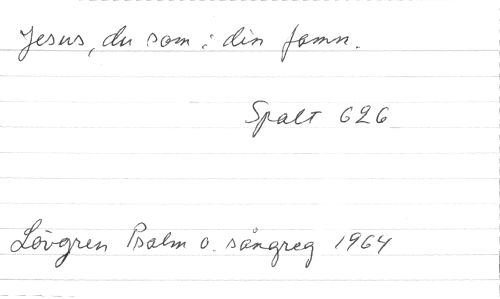 Jesus, du som i din famn.
Spalt 626
Lövgren Psalm o. sångreg 1964